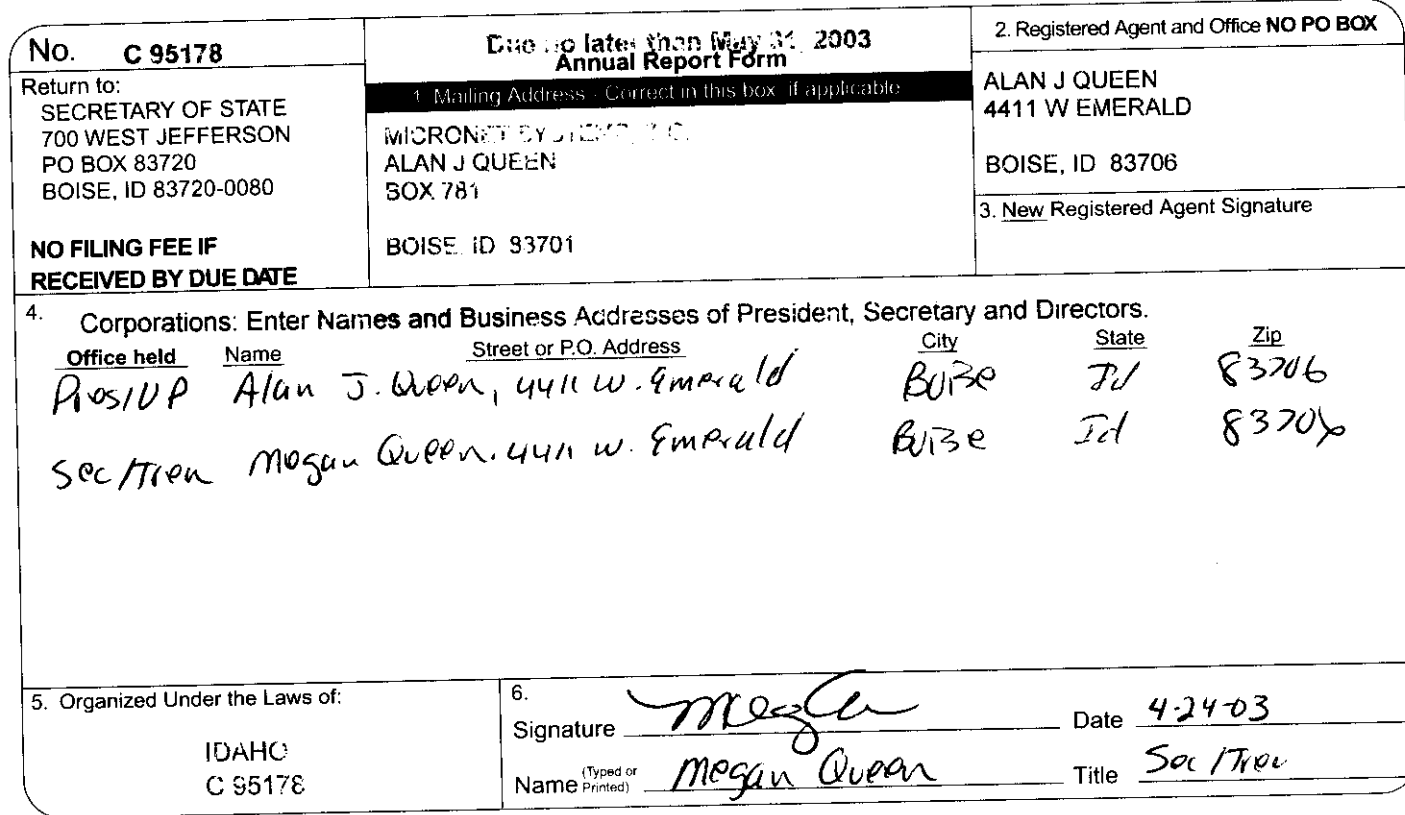 No. C 95178
Return to:
SECRETARY OF STATE
700 WEST JEFFERSON
PO BOX 83720
BOISE, ID 83720-0080
NO FILING FEE IF
RECEIVED BY DUE DATE
Due no later than May 31, 2003
Annual Report Form
1. Mailing Address - Correct in this box, if applicable
MICRONET
ALAN J QUEEN
BOX 781
BOISE, ID 83701
2. Registered Agent and Office NO PO BOX
ALAN J QUEEN
4411 W EMERALD
BOISE, ID 83706
3. New Registered Agent Signature
4. Corporations: Enter Names and Business Addresses of President, Secretary and Directors.
Office held Name Street or P.O. Address City State Zip
Pres/VP Alan J. Queen, 4411 W. Emerald Boise Id 83706
Sec/Tres Megan Queen. 4411 W. Emerald Boise Id 83706
5. Organized Under the Laws of:
IDAHO
C 95178
6.
Signature Date 4-24-03
Name (Typed or Printed) Megan Queen Title Sec/Tres